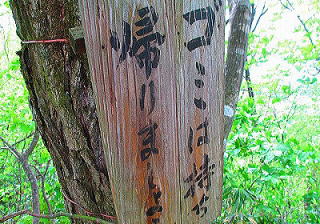 ゴミは持ち
帰りましょ